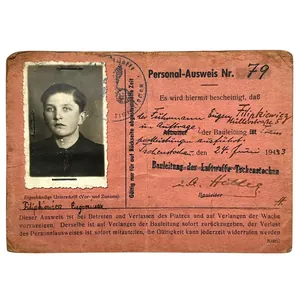 Personal-Ausweis Nr. 79
Es wird hiermit bescheinigt, daß
der Fuhrmann Eugen Filipkiewicz
im Auftrage
der Bauleitung
ausführt
Tschenstochau, den 26. Juni 1943
Bauleitung der Luftwaffe Tschenstochau
Gültig nur für auf Rückseite abgestempelte Zeit
Eigenhändige Unterschrift (Vor- und Zuname)
Dieser Ausweis ist bei Betreten und Verlassen des Platzes und auf Verlangen der Wache
vorzuzeigen. Derselbe ist auf Verlangen der Bauleitung sofort zurückzugeben, der Verlust
des Personalausweises ist sofort mitzuteilen, die Gültigkeit kann jederzeit widerrufen werden